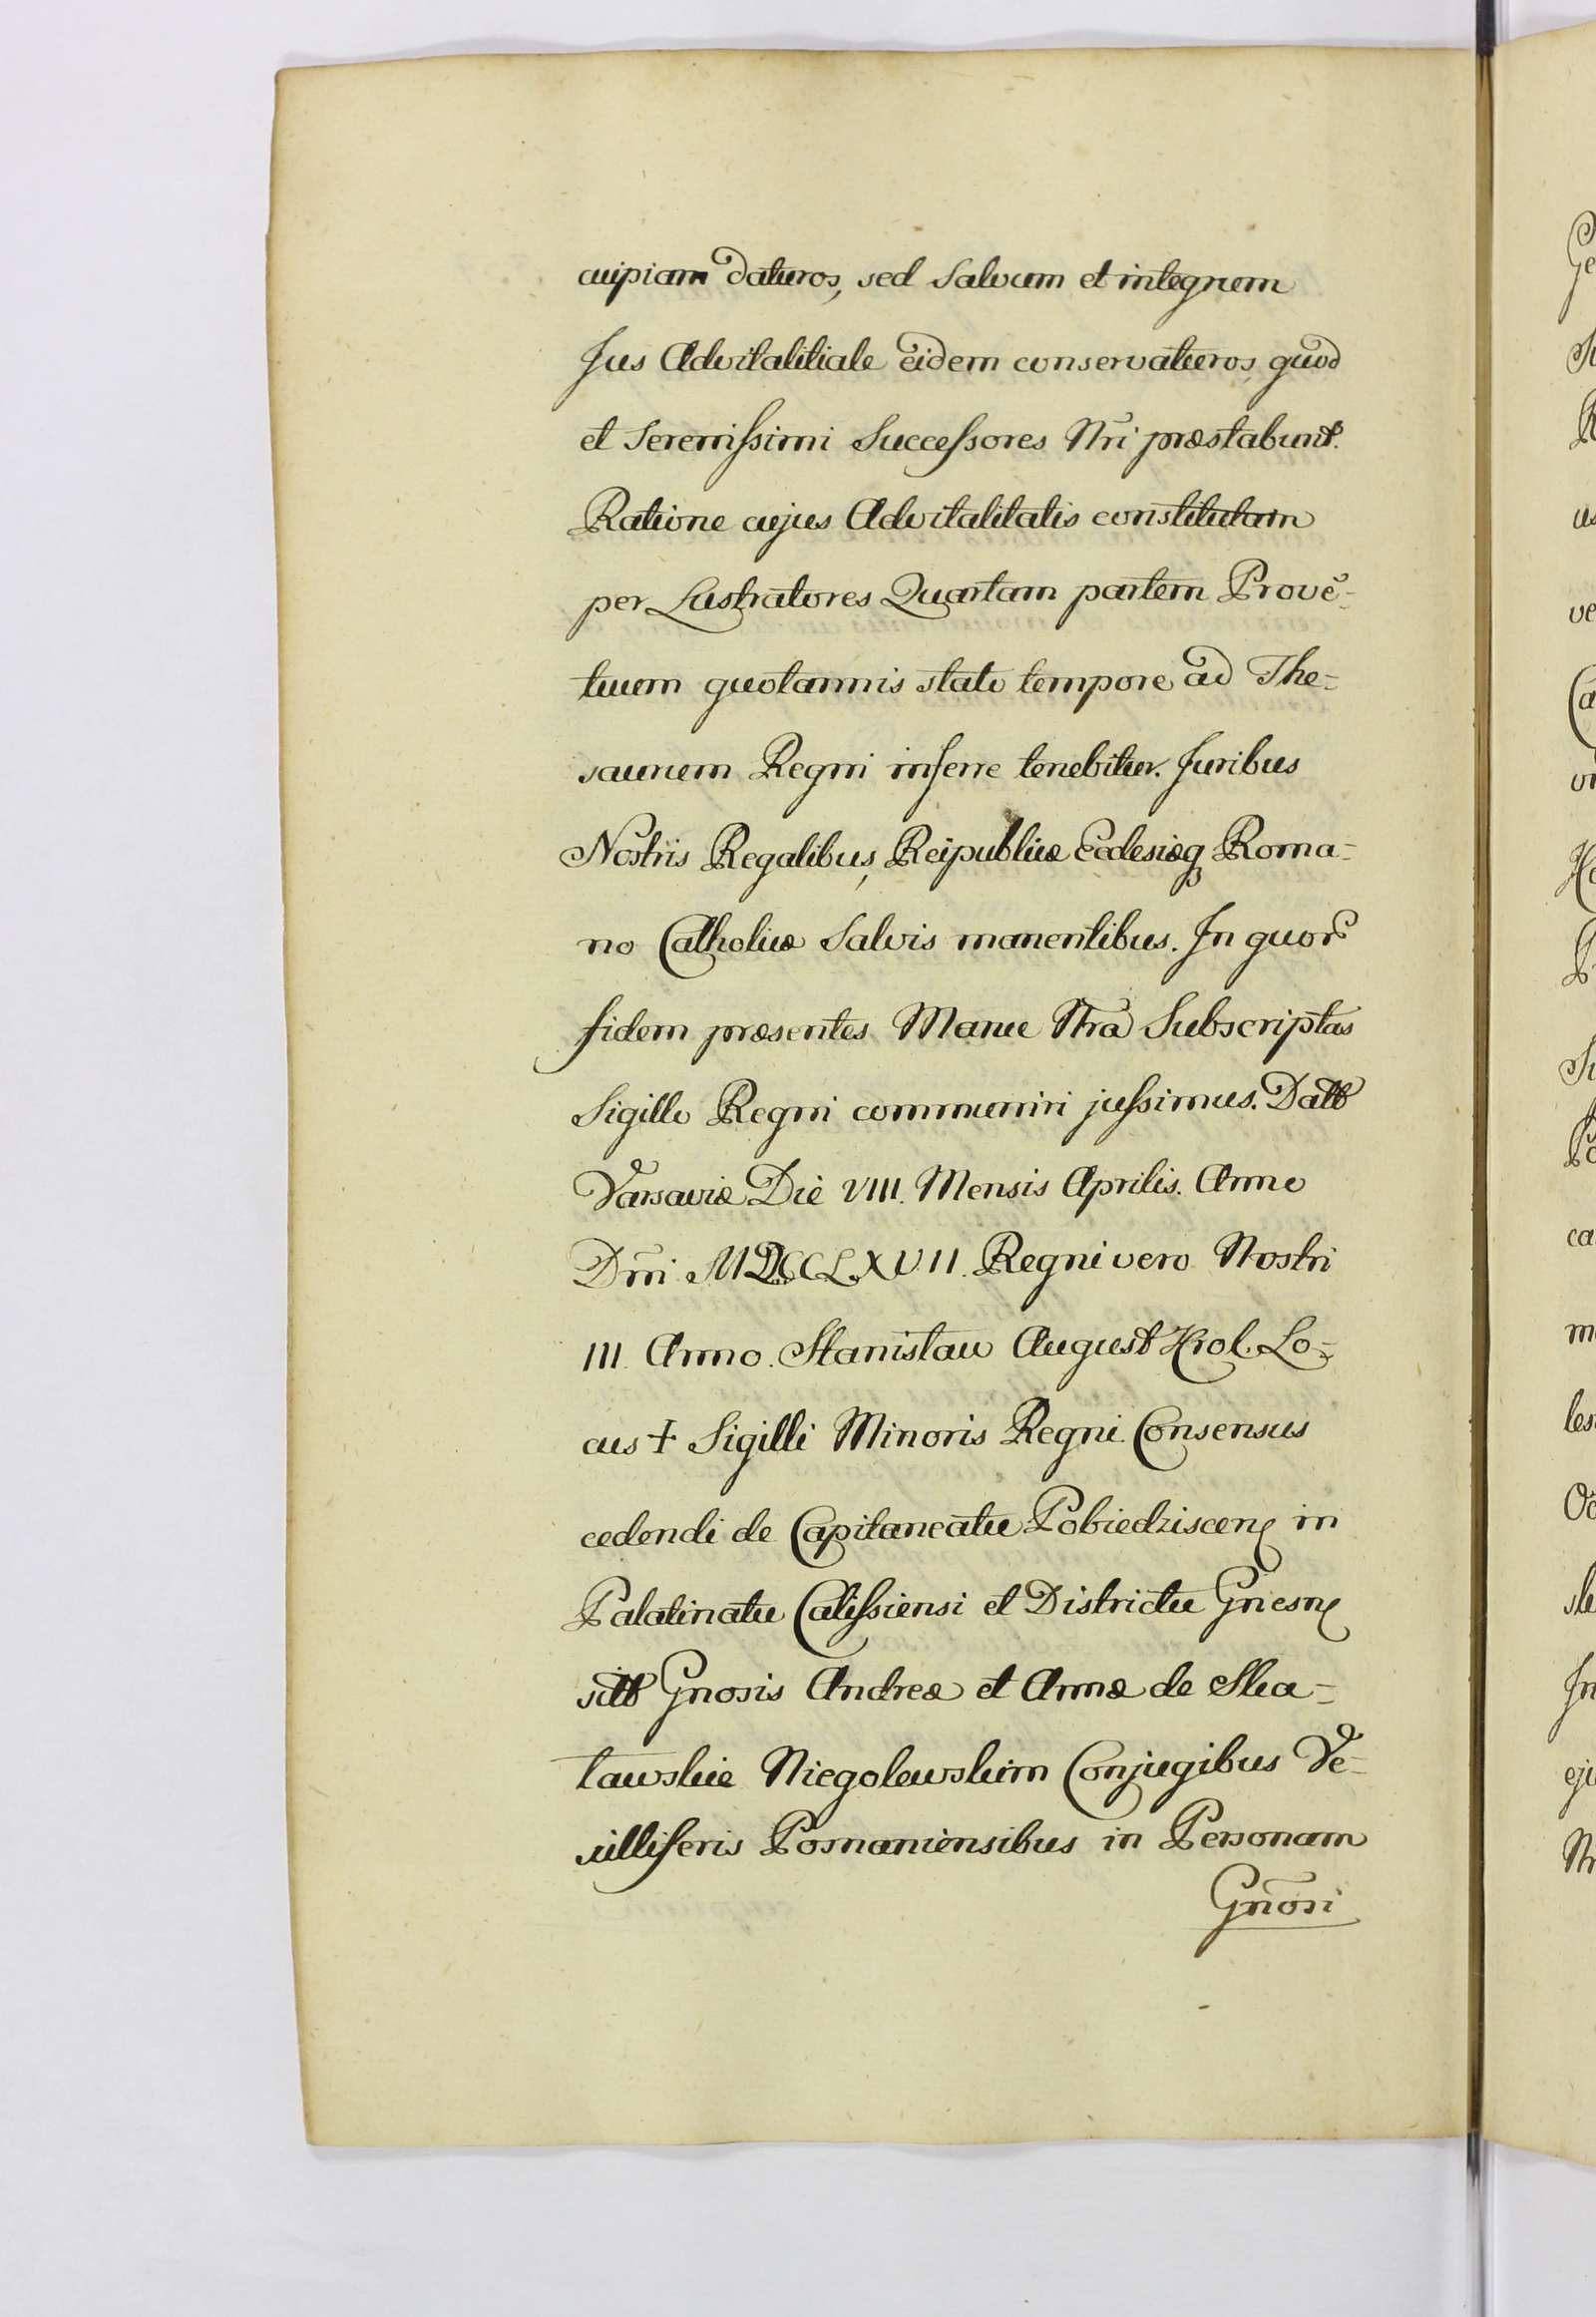 cuipiam daturos, sed Salvum et integrum
Jus Advitalitiale eidem conservaturos, quod
et Serenissimi Successores Nri præstabunt.
Ratione cujus Advitalitatis constitutam
per Lustratores Quartam partem Prove-
tuum quotannis stato tempore ad The-
saurum Regni inferre tenebitur. Juribus
Nostris Regalibus, Reipublicæ Ecclesiæq Roma-
no Catholicæ Salvis manentibus. In quor
fidem præsentes Manu Nra Subscriptas
Sigillo Regni communiri jussimus. Datt
Varsaviæ Die VIII. Mensis Aprilis. Anno
Dni MDCCLXVII. Regni vero Nostri
III Anno. Stanisław August Krol. Lo-
cus + Sigilli Minoris Regni. Consensus
cedendi de Capitaneatu Pobiedziscen in
Palatinatu Calissiensi et Districtu Gnesn
sitt Gnosis Andreæ et Annæ de Ska-
ławskie Niegolewskim Conjugibus Ve-
xilliferis Posnaniensibus in Personam
Gnosi
Ge
ve
Ca
ca
ej